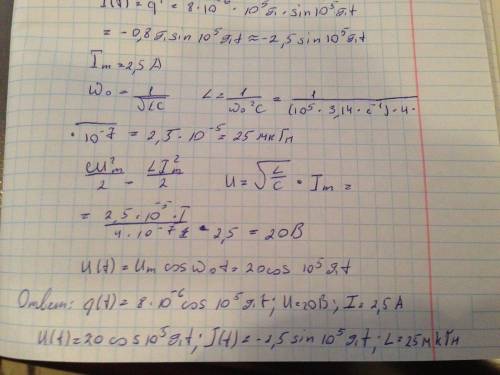 I(t) = q' = 8·10⁻⁶ · 10⁵π · sin10⁵πt
= -0,8π sin 10⁵πt ≈ -2,5 sin10⁵πt
Im = 2,5 A
ω₀ = 1/√LC   L = 1/ω₀²C = 1/(10⁵ · 3,14 · c⁻¹) · 4 ·
· 10⁻⁷ = 2,5 · 10⁻⁵ = 25 мкГн
CU²m/2 = LI²m/2   U = √L/C · Im =
= 2,5 · 10⁻⁵ · I/4 · 10⁻⁷ · 2,5 = 20В
U(t) = Um cos ω₀t = 20cos 10⁵πt
Ответ: q(t) = 8·10⁻⁶cos 10⁵πt; U=20В; I = 2,5 A
U(t) = 20 cos 10⁵πt; I(t) = -2,5 sin 10⁵πt; L = 25мкГн